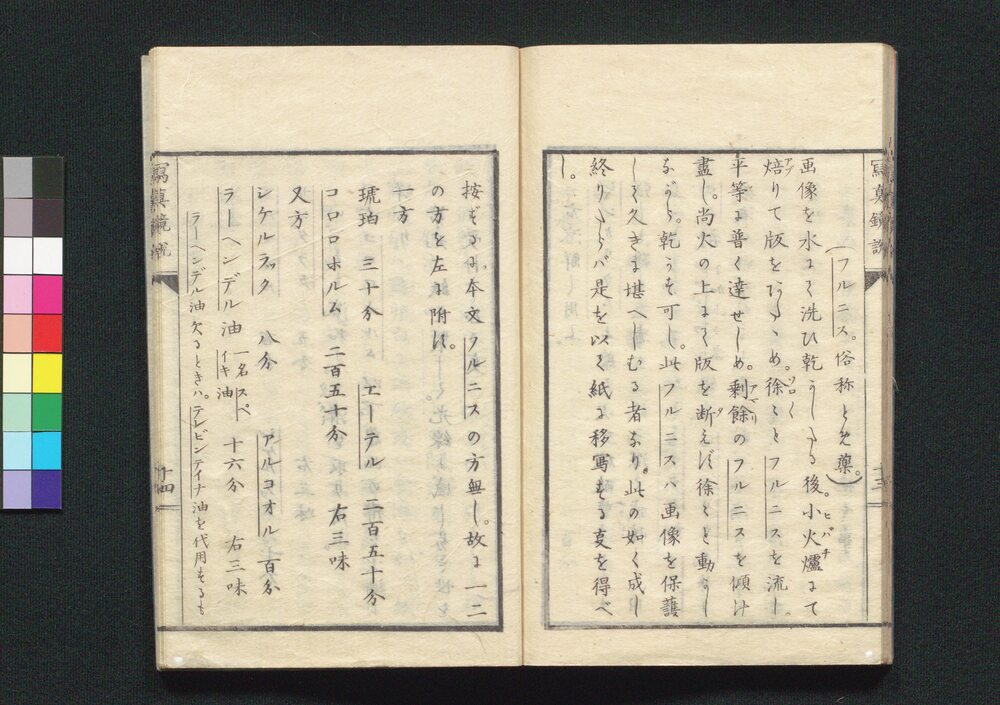 寫真鏡説
十三
(フルニス。俗称とめ藥。)
画像を水にて洗ひ乾かしたる後。小火爐にて
ヒバチ
焙りて版をあたゝめ。徐々とフルニスを流し。
アブ
ソロく
平等に普く達せしめ。剰餘のフルニスを傾け
アマリ
盡し。尚火の上にて版を断えず徐々と動かし
タ
ながら。乾かす可し。此フルニスハ画像を保護
しく久きに堪へしむる者なり。此の如く成し
終りたらバ是を以て紙に移寫する支を得べ
し。
按ずるに。本文フルニスの方無し。故に一二
の方を左に附す。
一方
琥珀 三十分 エーテル 二百五十分
コロロホルム 二百五十分 右三味
又方
シケルラック 八分 アルコオル 百分
ラーヘンデル油 一名スペイキ油 十六分 右三味
ラーヘンデル油欠るときハ。テレビンテイナ油を代用するも
寫真鏡説
十四